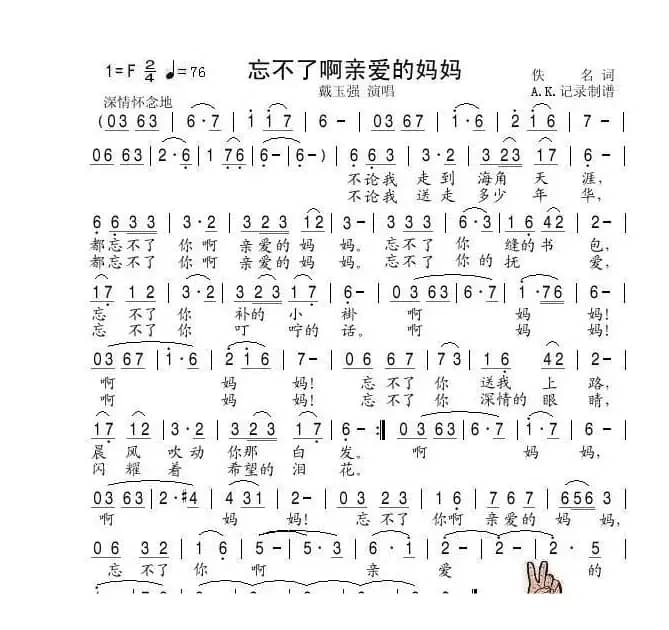 忘不了啊亲爱的妈妈
1=F 2/4 ♩=76
戴玉强 演唱
佚 名 词
A.K.记录制谱
深情怀念地
(03 63 | 6·7 | 1 17 | 6- | 03 67 | 1·6 | 2 16 | 7- |
06 63 | 2·6 | 1 76 | 6- | 6-) | 6 63 | 3·2 | 3 23 17 | 6- |
不论我 走到 海角 天 涯,
不论我 送走 多少 年 华,
6 6 33 | 3·2 | 3 23 12 | 3- | 3 33 | 6·3 | 16 42 | 2- |
都忘不了 你啊 亲爱的妈 妈。 忘不了 你 缝的书 包,
都忘不了 你啊 亲爱的妈 妈。 忘不了 你的 抚 爱,
17 12 | 3·2 | 3 23 17 | 6- | 03 63 | 6·7 | 1·76 | 6- |
忘 不了 你 补的 小 褂 啊 妈 妈!
忘 不了 你 叮 咛的 话。 啊 妈 妈!
03 67 | 1·6 | 2 16 | 7- | 06 67 | 73 | 16 42 | 2- |
啊 妈 妈! 忘 不了 你 送我 上 路,
啊 妈 妈! 忘 不了 你 深情的 眼 睛,
17 12 | 3·2 | 3 23 17 | 6- :‖ 03 63 | 6·7 | 1·7 | 6- |
晨 风 吹 动 你那 白 发。 啊 妈 妈,
闪 耀 着 希望的 泪 花。
03 63 | 2·#4 | 4 31 | 2- | 03 23 | 16 | 7 67 | 656 3 |
啊 妈 妈! 忘 不了 你啊 亲爱的 妈 妈,
06 32 | 16 | 5- | 5·3 | 6·1 | 2- | 2- | 2·5 |
忘 不了 你 啊 亲 爱 的